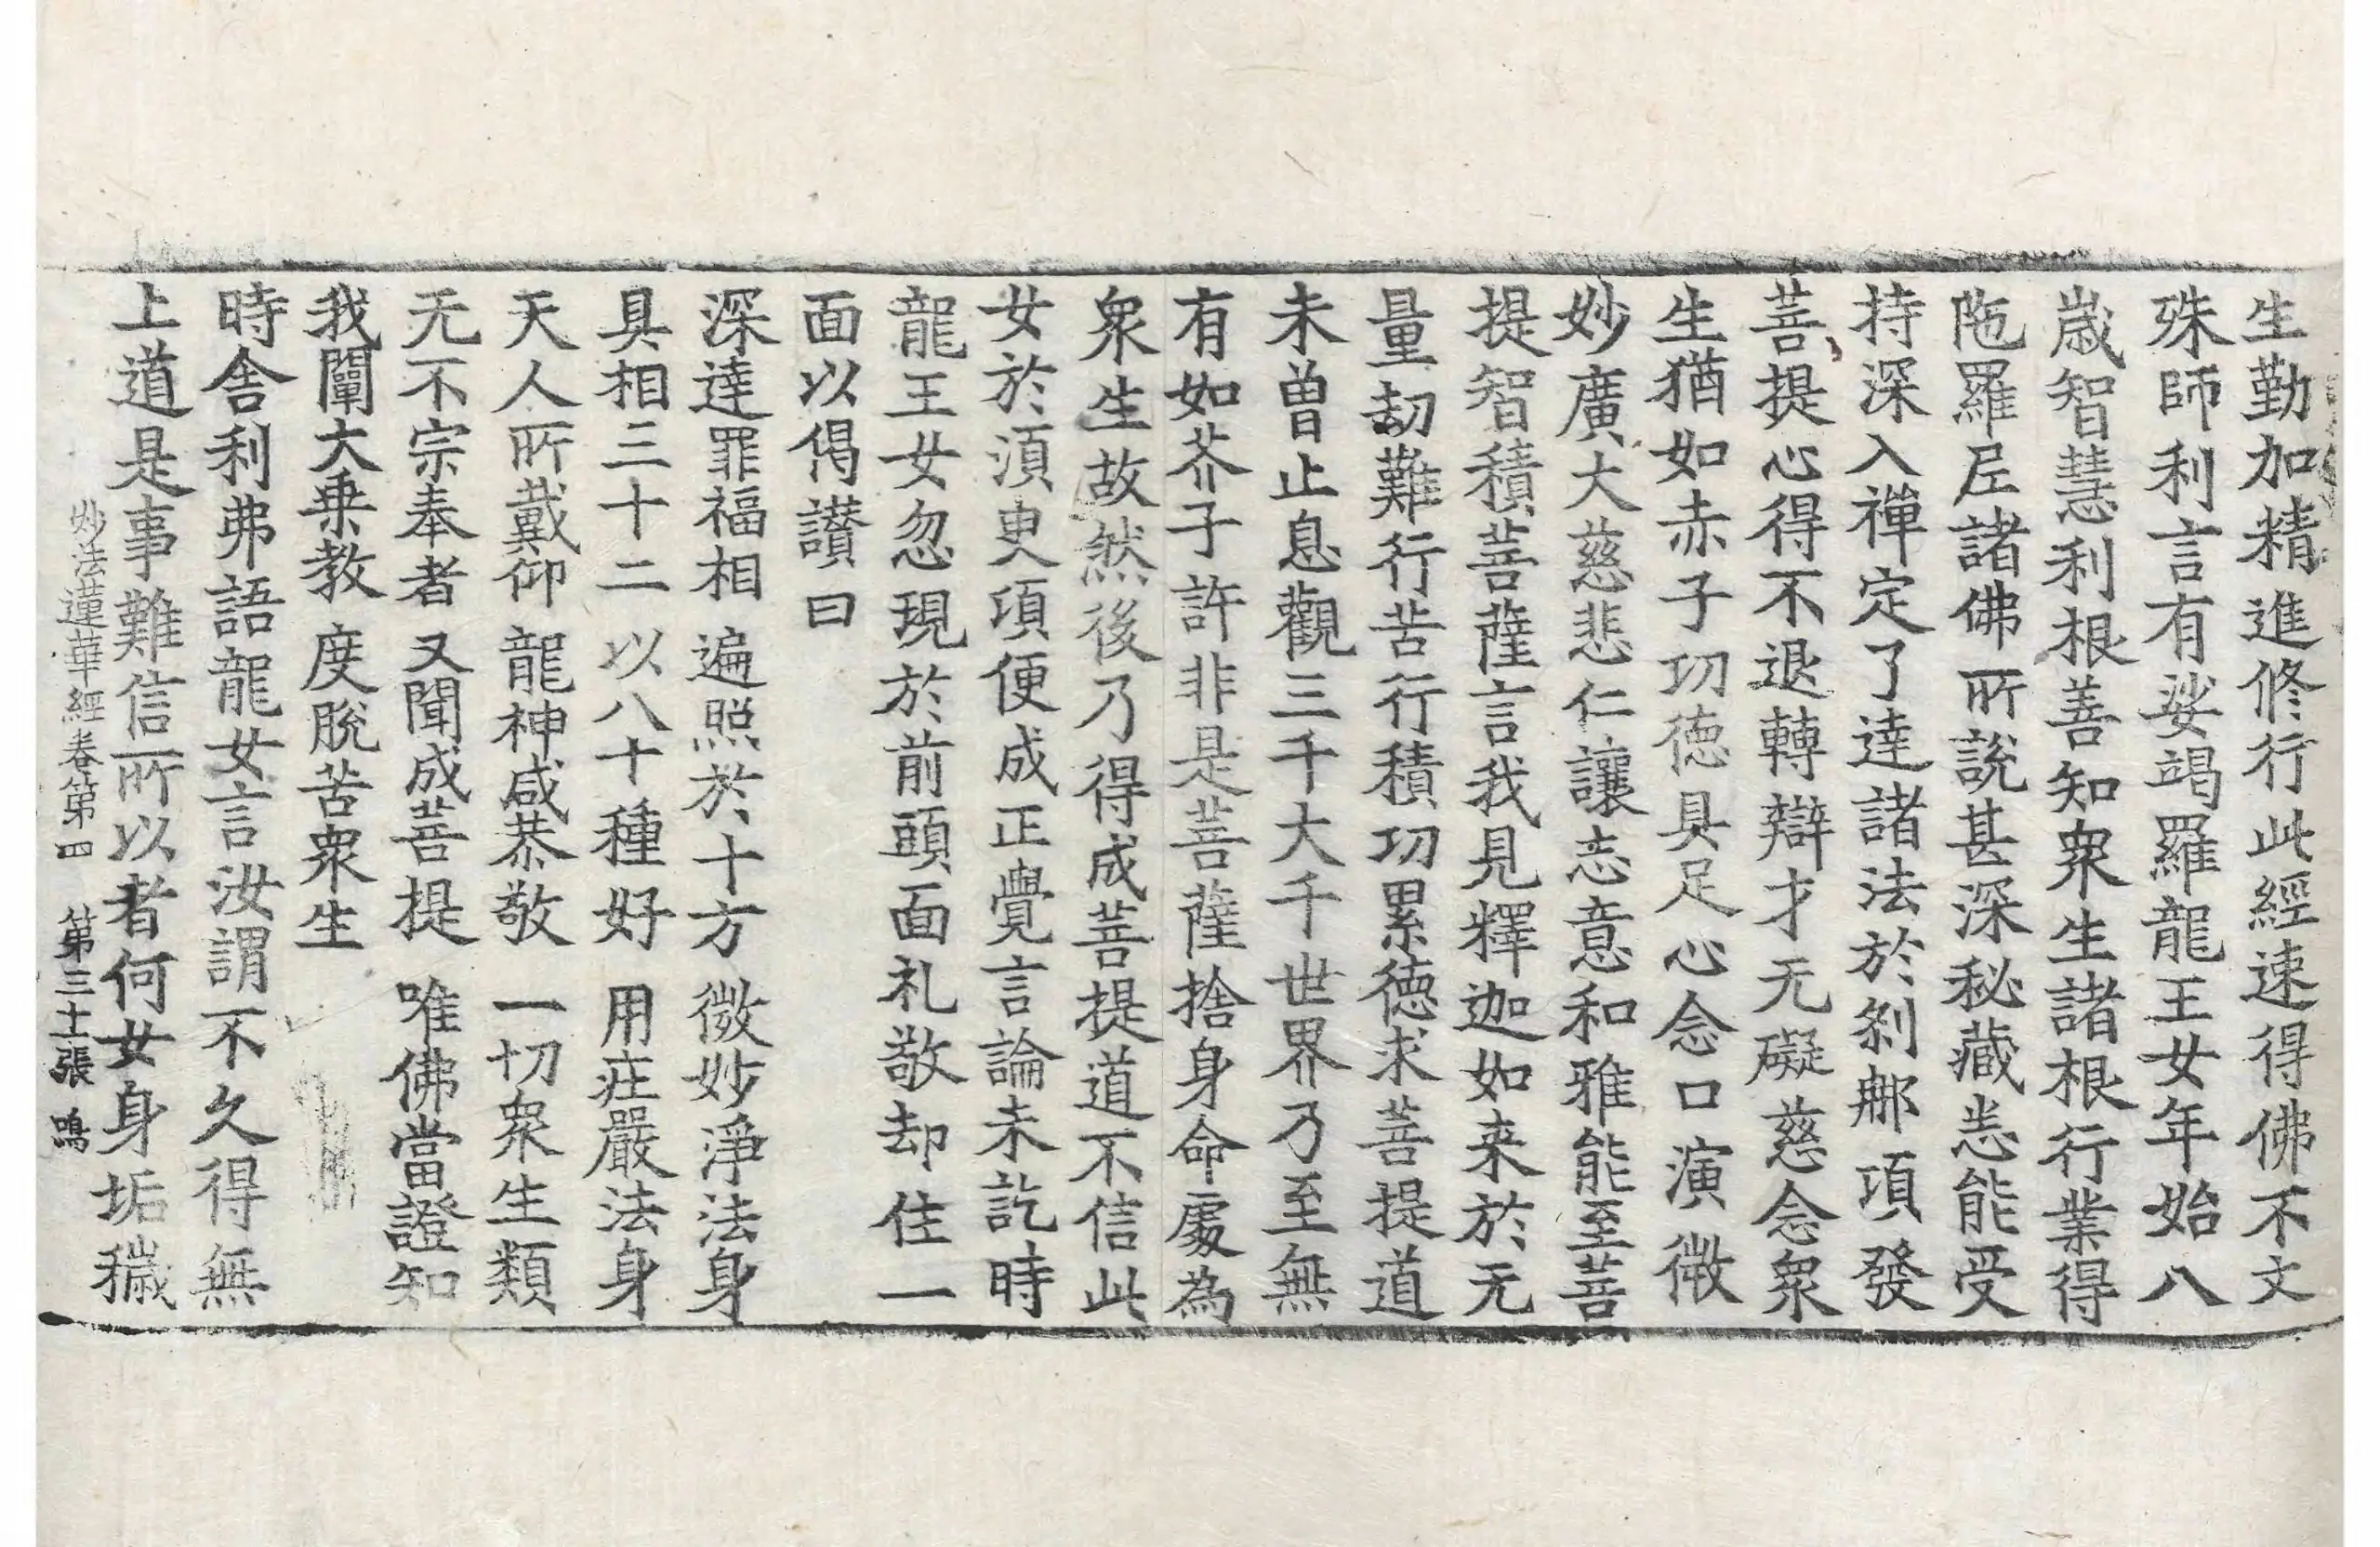 生勤加精進修行此經速得佛不文
殊師利言有娑竭羅龍王女年始八
歲智慧利根善知衆生諸根行業得
陁羅尼諸佛所說甚深秘藏悉能受
持深入禪定了達諸法於剎那項發
菩提心得不退轉辯才无礙慈念衆
生猶如赤子功德具足心念口演微
妙廣大慈悲仁讓志意和雅能至菩
提智積菩薩言我見釋迦如来於无
量劫難行苦行積功累德求菩提道
未曾止息觀三千大千世界乃至無
有如芥子許非是菩薩捨身命處為
衆生故然後乃得成菩提道不信此
女於湏臾項便成正覺言論未訖時
龍王女忽現於前頭面礼敬却住一
面以偈讃曰
深達罪福相 遍照於十方 微妙淨法身
具相三十二 以八十種好 用莊嚴法身
天人所戴仰 龍神咸恭敬 一切衆生類
无不宗奉者 又聞成菩提 唯佛當證知
我闡大乗教 度脫苦衆生
時舍利弗語龍女言汝謂不久得無
上道是事難信所以者何女身垢穢
妙法蓮華經卷第四 第三十張 鳴